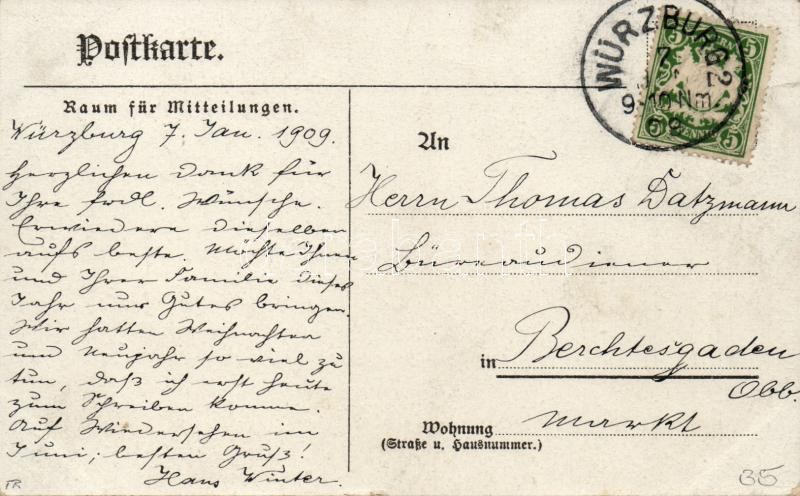 Postkarte.
WÜRZBURG 2
7
9-10 Nm
09
5 5
5 PFENNIG
Raum für Mitteilungen.
Würzburg 7. Jan. 1909.
Herzlichen Dank für
Ihre frdl. Wünsche.
Erwiedere dieselben
aufs beste. Möchte Ihnen
und Ihrer Familie dieses
Jahr nur Gutes bringen.
Wir hatten Weihnachten
und Neujahr so viel zu
tun, daß ich erst heute
zum Schreiben komme.
Auf Wiedersehen im
Juni; besten Gruß!
Hans Winter.
An
Herrn Thomas Datzmann
Büreaudiener
in Berchtesgaden
Obb.
Markt
Wohnung
(Straße u. Hausnummer.)
FR
35